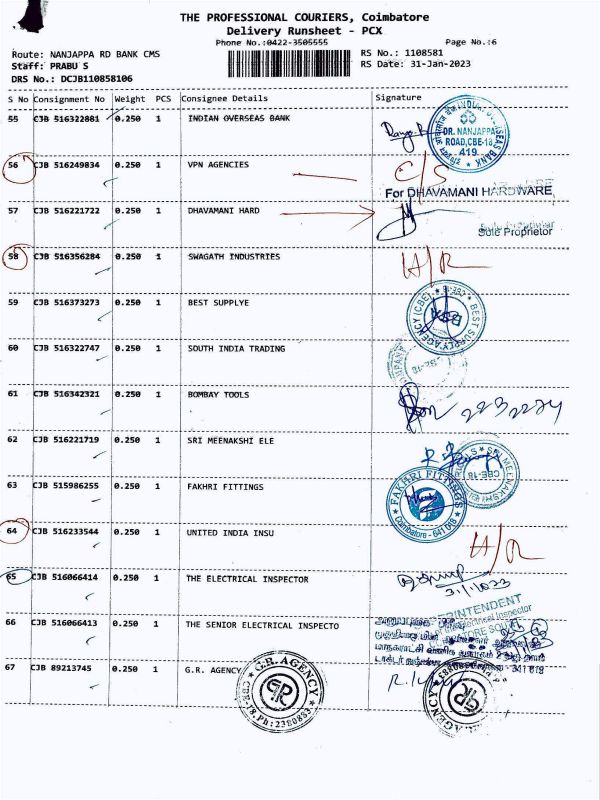 THE PROFESSIONAL COURIERS, Coimbatore
Delivery Runsheet - PCX
Phone No.:0422-3505555 Page No.:6
Route: NANJAPPA RD BANK CMS RS No.: 1108581
Staff: PRABU S RS Date: 31-Jan-2023
DRS No.: DCJB110858106
S No Consignment No Weight PCS Consignee Details Signature
55 CJB 516322881 0.250 1 INDIAN OVERSEAS BANK
DR. NANJAPPA
ROAD,CBE-18
419
56 CJB 516249834 0.250 1 VPN AGENCIES C/S
For DHAVAMANI HARDWARE
57 CJB 516221722 0.250 1 DHAVAMANI HARD
Sole Proprietor
58 CJB 516356284 0.250 1 SWAGATH INDUSTRIES H/R
59 CJB 516373273 0.250 1 BEST SUPPLYE
BEST SUPPLY AGENCY (CBE) CBE-18
60 CJB 516322747 0.250 1 SOUTH INDIA TRADING
61 CJB 516342321 0.250 1 BOMBAY TOOLS
62 CJB 516221719 0.250 1 SRI MEENAKSHI ELE
SRI MEENAKSHI
CBE-18
63 CJB 515986255 0.250 1 FAKHRI FITTINGS
FAKHRI FITTINGS
Coimbatore - 641 018
64 CJB 516233544 0.250 1 UNITED INDIA INSU H/R
65 CJB 516066414 0.250 1 THE ELECTRICAL INSPECTOR
31/1/2023
66 CJB 516066413 0.250 1 THE SENIOR ELECTRICAL INSPECTO
67 CJB 89213745 1 G.R. AGENCY
G.R. AGENCY
CBE-18, Ph: 2380883